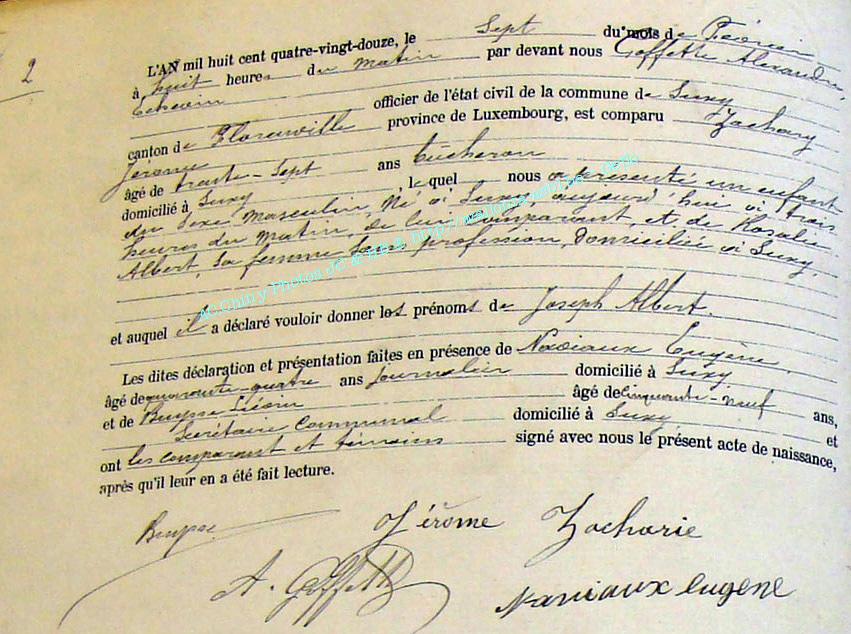 2
L'AN mil huit cent quatre-vingt-douze, le Sept du mois de Février
à huit heures du matin par devant nous Goffette Alexandre,
Echevin officier de l'état civil de la commune de Suxy
canton de Florenville province de Luxembourg, est comparu Zachary
Jérome
âgé de trente-sept ans bûcheron
domicilié à Suxy, le quel nous a présenté un enfant
du sexe masculin, né à Suxy aujourd'hui à trois
heures du matin, de lui comparant, et de Rosalie
Albert, sa femme sans profession, domiciliée à Suxy,
et auquel il a déclaré vouloir donner les prénoms de Joseph Albert.
Les dites déclaration et présentation faites en présence de Naviaux Eugène
âgé de quarante-quatre ans journalier domicilié à Suxy
et de Buysse âgé de cinquante-neuf ans,
Secrétaire Communal domicilié à Suxy et
ont les comparant et témoins signé avec nous le présent acte de naissance,
après qu'il leur en a été fait lecture.
Buysse Jérôme Zacharie
A. Goffette Naviaux eugene
AC Chiny Photos JC &